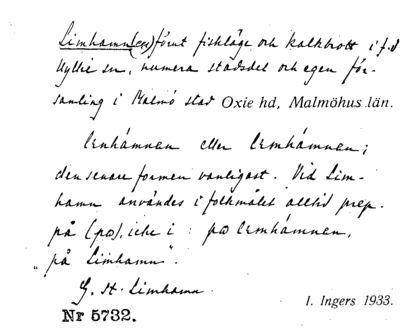 Limhamn(en) förut fiskläge och kalkbrott i f.d
Hyllie sn, numera stadsdel och egen för-
samling i Malmö stad Oxie hd, Malmöhus län.
lenhámnan eller lemhámnan;
den senare formen vanligast. Vid Lim-
hamn användes i folkmålet alltid prep.
på (pɷ), icke i: pɷ lemhámnan,
"på Limhamn".
G. st. Limhamn.
I. Ingers 1933.
Nr 5732.